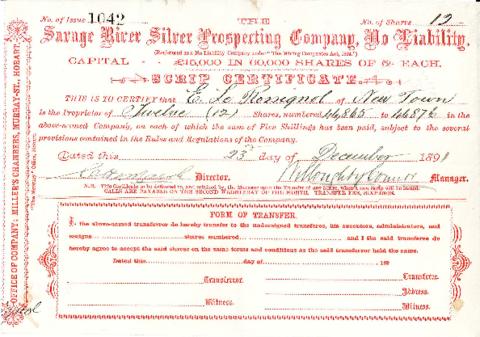 No. of Issue 1042 THE No. of Shares 12
Savage River Silver Prospecting Company, No Liability,
(Registered as a No Liability Company under "The Mining Companies Act, 1884.")
CAPITAL £15,000 IN 60,000 SHARES OF 5/- EACH.
SCRIP CERTIFICATE.
THIS IS TO CERTIFY that E. Le Rossignol of New Town
is the Proprietor of Twelve (12) Shares, numbered 44865 to 44876 in
the above-named Company, on each of which the sum of Five Shillings has been paid, subject to the several
provisions contained in the Rules and Regulations of the Company.
Dated this 23rd day of December 1891
Director. Manager.
N.B. This Certificate to be delivered to, and retained by, the Manager upon the Transfer of any Share, when a new Scrip will be issued.
CALLS ARE PAYABLE ON THE SECOND WEDNESDAY OF THE MONTH. TRANSFER FEE, SIXPENCE.
FORM OF TRANSFER.
the above-named transferror do hereby transfer to the undersigned transferree, his executors, administrators, and
assigns shares numbered and I the said transferree do
hereby agree to accept the said shares on the same terms and conditions as the said transferror held the same.
Dated this day of 189
Transferror. Transferree.
Address.
Witness. Witness.
OFFICE OF COMPANY: MILLER'S CHAMBERS, MURRAY-ST., HOBART.